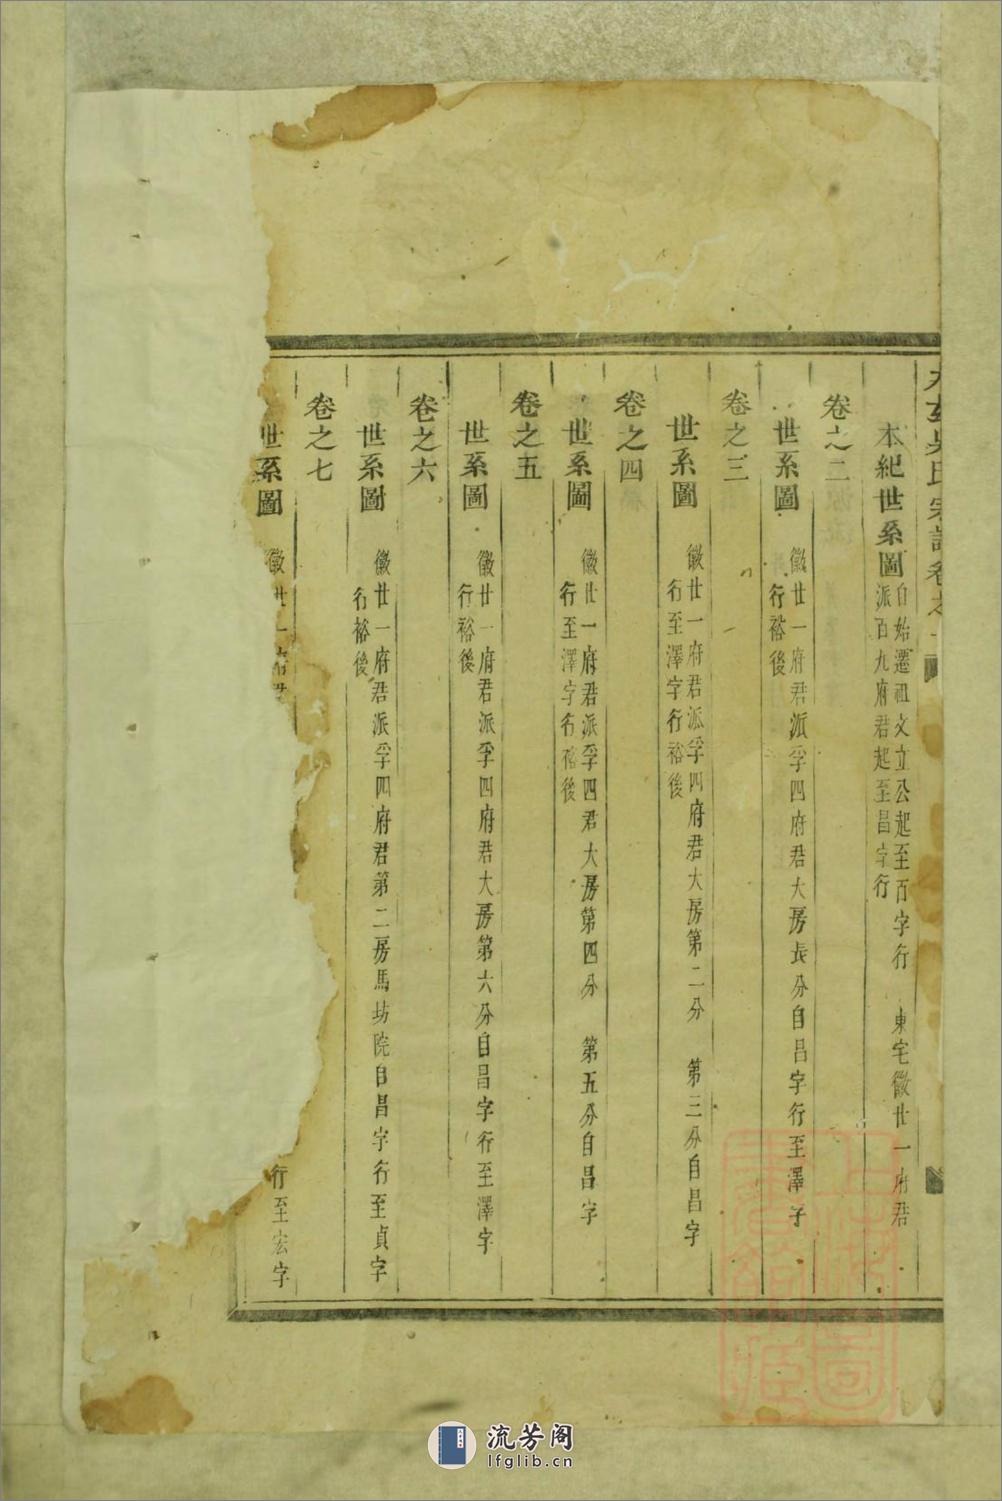 吳氏宗譜卷之
本紀世系圖 自始遷祖文立公起至百字行 東宅徽廿一府君
派百九府君起至昌字行
卷之二
世系圖 徽廿一府君派孚四府君大房長分自昌字行至澤字
行裕後
卷之三
世系圖 徽廿一府君派孚四府君大房第二分 第三分自昌字
行至澤字行裕後
卷之四
世系圖 徽廿一府君派孚四君大房第四分 第五分自昌字
行至澤字行裕後
卷之五
世系圖 徽廿一府君派孚四府君大房第六分自昌字行至澤字
行裕後
卷之六
世系圖 徽廿一府君派孚四府君第二房馬坊院自昌字行至貞字
行裕後
卷之七
世系圖 徽廿一府君 行至宏字
上海圖書館藏
流芳阁
lfglib.cn